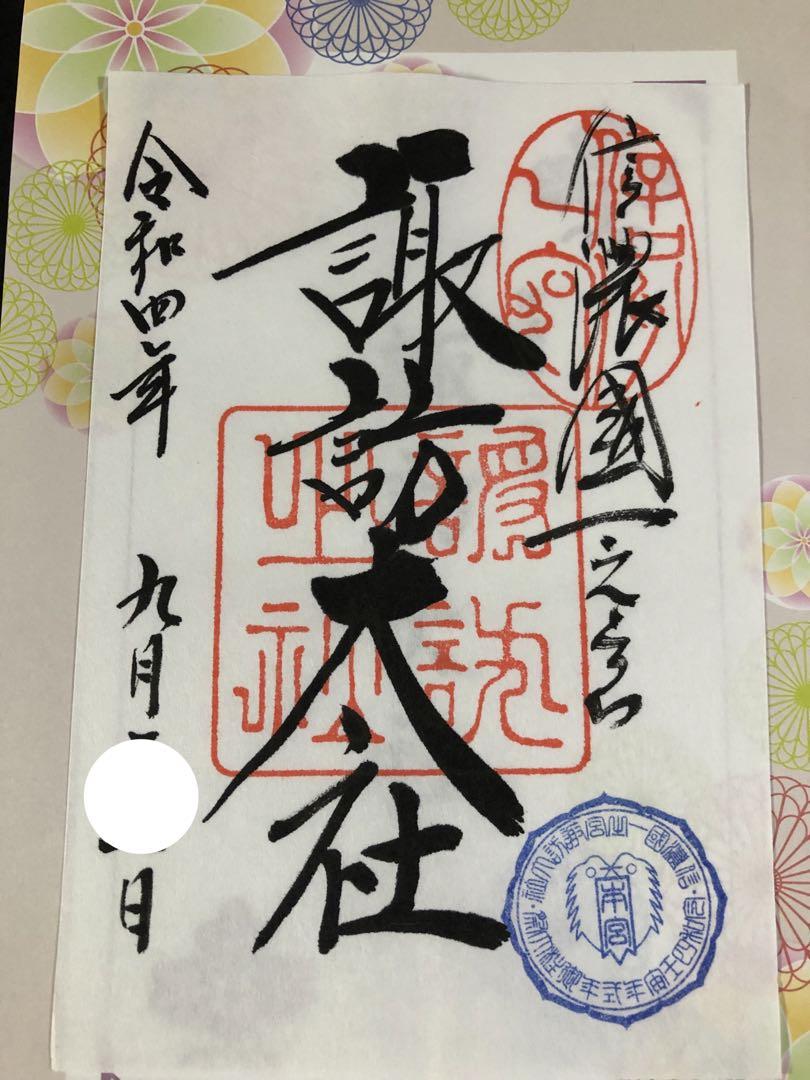 信濃國一之宮
諏訪大社
令和四年
九月
日
諏訪
之社
信濃國一之宮諏訪大社
令和四壬寅年式年御柱大祭
本宮